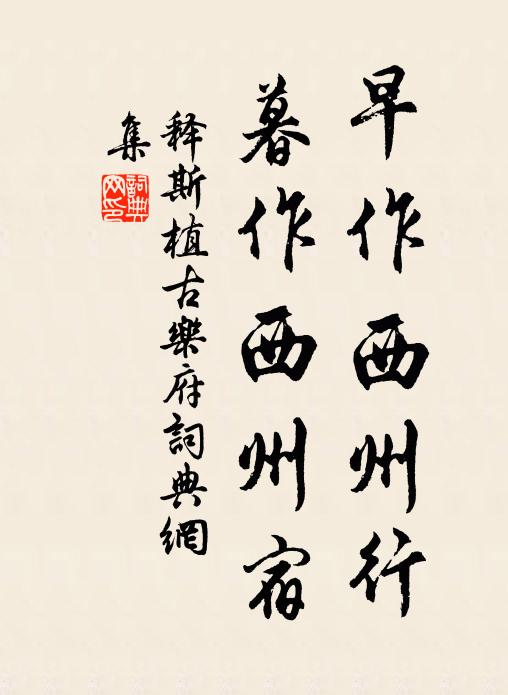 早作西州行
暮作西州宿
释斯植古樂府詞典網
集
詞典網印